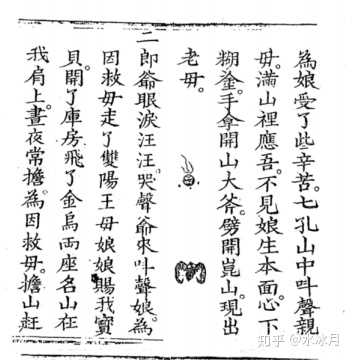 為娘受了些辛苦。七孔山中叫聲親
毋。滿山裡應吾。不見娘生本面心。下
糊塗。手拿開山大斧。劈開崑山。現出
老毋。
二郎爺眼淚汪汪。哭聲爺來叫聲娘。為
因救毋走了雙陽王毋娘娘賜我寶
貝開了庫房飛了金烏兩座名山在
我肩上。晝夜常擔。為因救毋。擔山赶
知乎 @水冰月